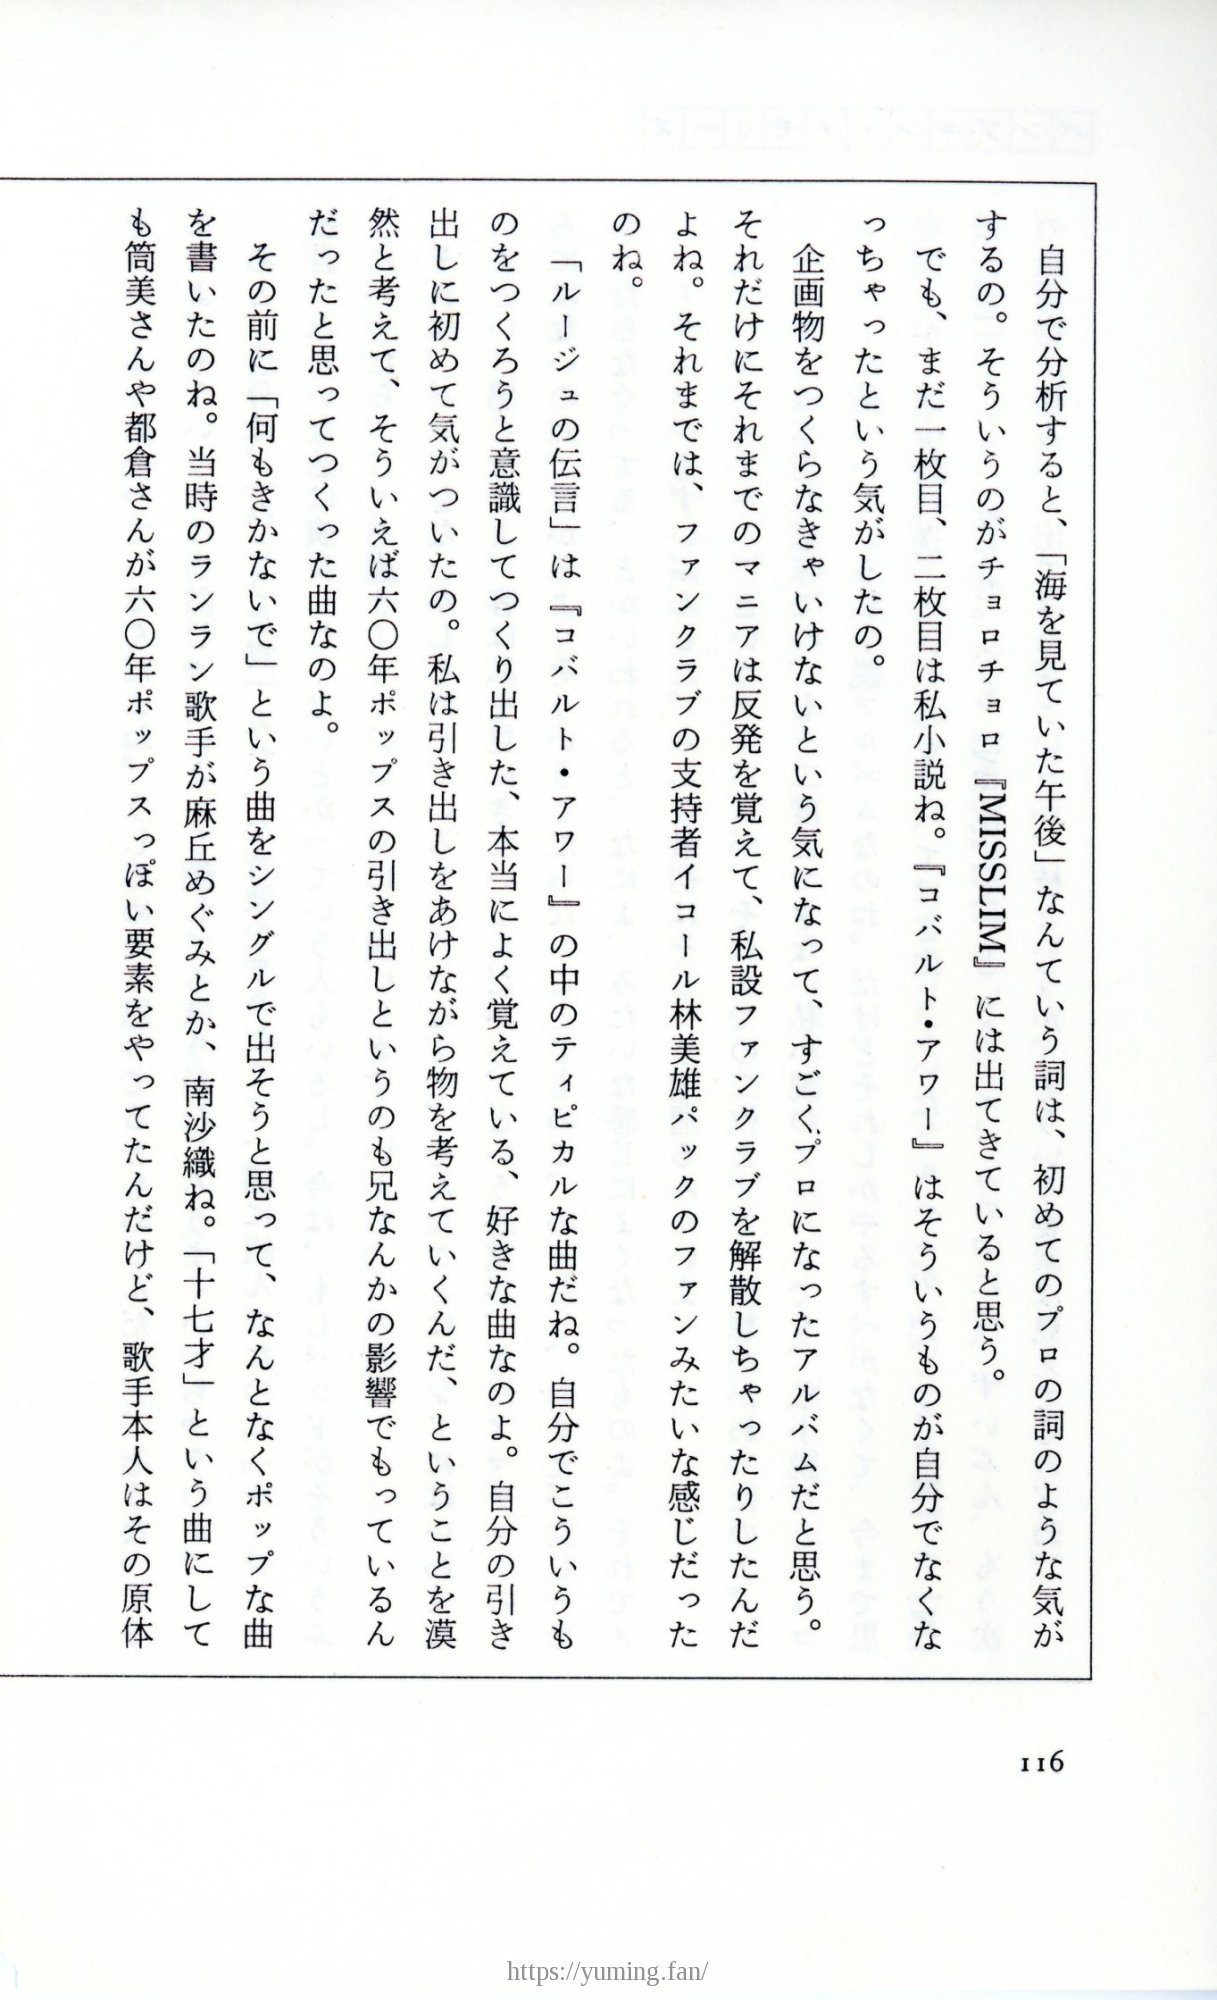 自分で分析すると、「海を見ていた午後」なんていう詞は、初めてのプロの詞のような気が
するの。そういうのがチョロチョロ『MISSLIM』には出てきていると思う。
でも、まだ一枚目、二枚目は私小説ね。『コバルト・アワー』はそういうものが自分でなくな
っちゃったという気がしたの。
企画物をつくらなきゃいけないという気になって、すごくプロになったアルバムだと思う。
それだけにそれまでのマニアは反発を覚えて、私設ファンクラブを解散しちゃったりしたんだ
よね。それまでは、ファンクラブの支持者イコール林美雄パックのファンみたいな感じだった
のね。
「ルージュの伝言」は『コバルト・アワー』の中のティピカルな曲だね。自分でこういうも
のをつくろうと意識してつくり出した、本当によく覚えている、好きな曲なのよ。自分の引き
出しに初めて気がついたの。私は引き出しをあけながら物を考えていくんだ、ということを漠
然と考えて、そういえば六〇年ポップスの引き出しというのも兄なんかの影響でもっているん
だったと思ってつくった曲なのよ。
その前に「何もきかないで」という曲をシングルで出そうと思って、なんとなくポップな曲
を書いたのね。当時のランラン歌手が麻丘めぐみとか、南沙織ね。「十七才」という曲にして
も筒美さんや都倉さんが六〇年ポップスっぽい要素をやってたんだけど、歌手本人はその原体
116
https://yuming.fan/